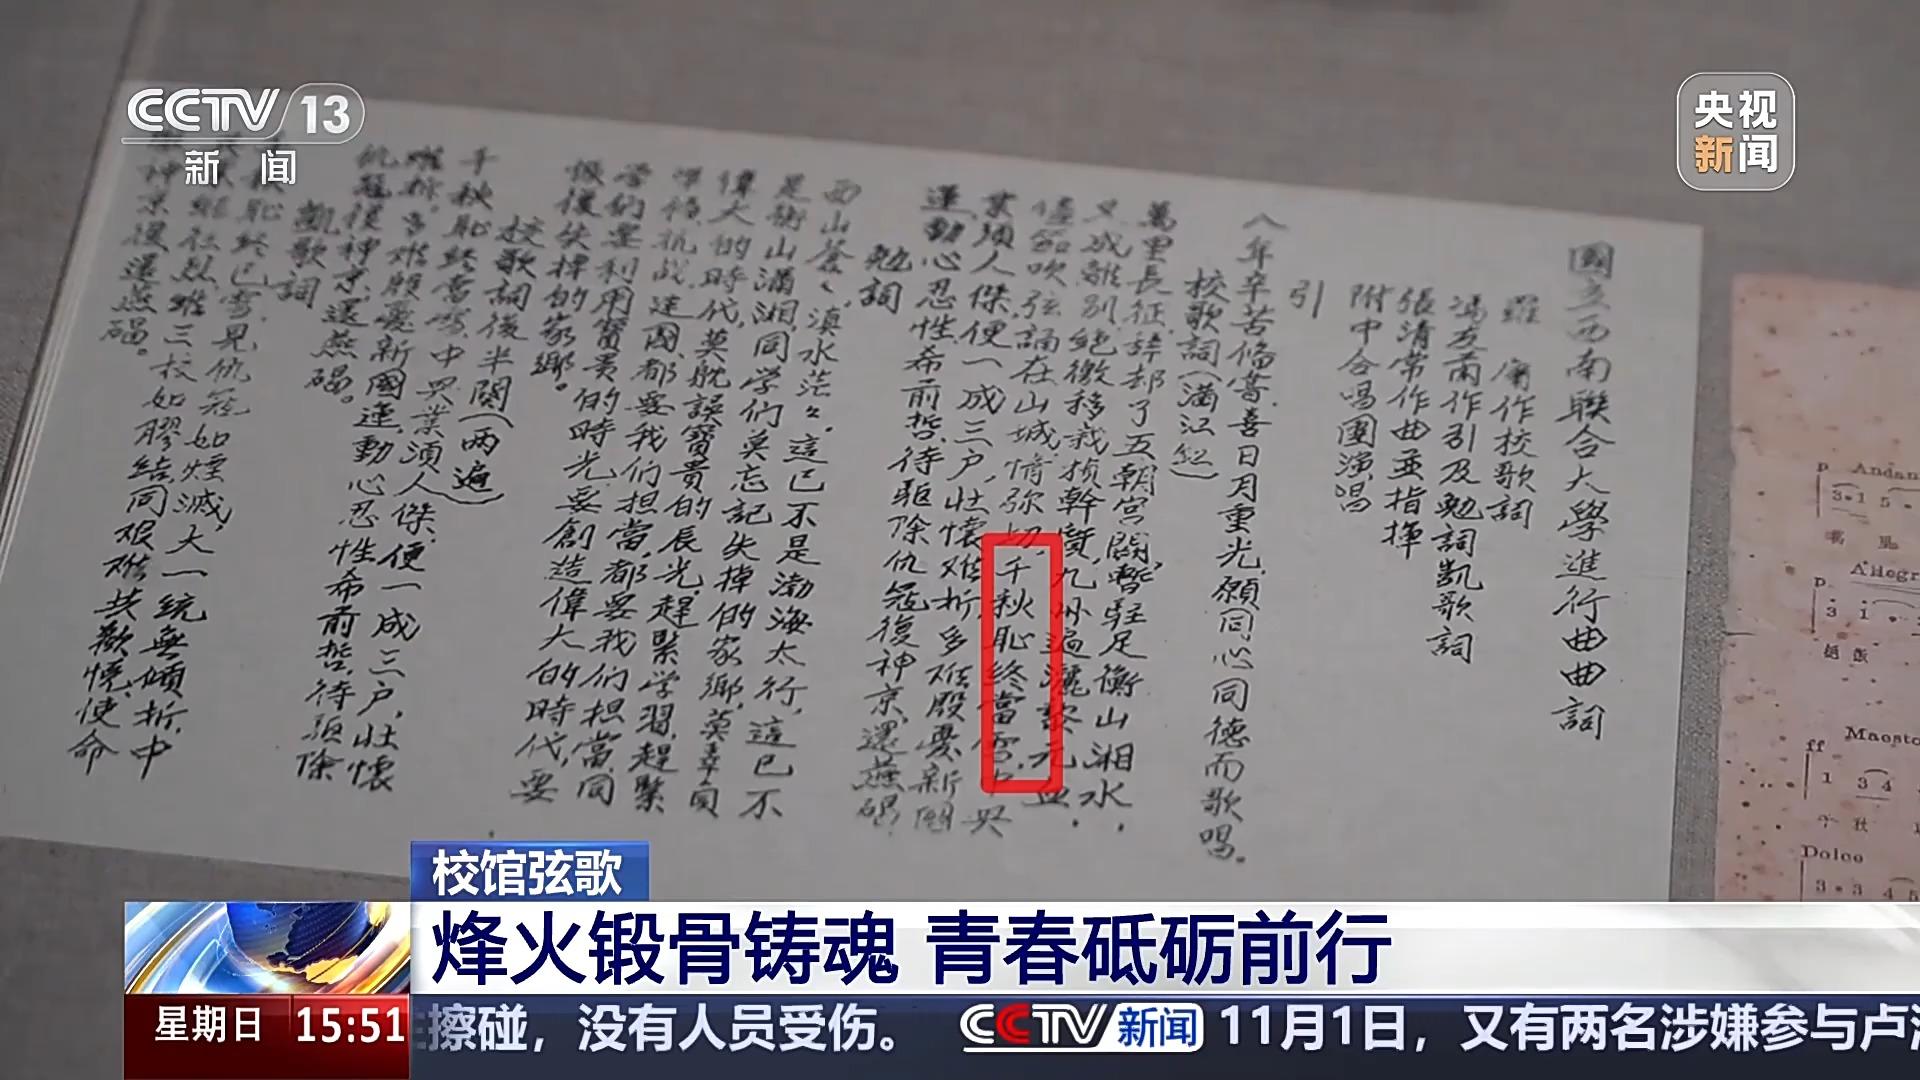 CCTV 13
新闻
央视
新闻
國立西南聯合大學進行曲曲詞
羅庸作校歌詞
馮友蘭作引及勉詞凱歌詞
張清常作曲並指揮
附中合唱團演唱
引
八年辛苦備嘗,喜日月重光,願同心同德而歌唱。
校歌詞(滿江紅)
萬里長征,辭却了五朝宮闕,暫駐足衡山湘水,
又成離別,絕徼移栽楨幹質,九州遍灑黎元血,
儘笳吹弦誦在山城,情弥切,千秋恥,終當雪,中興
業,須人傑,便一成三户,壯懷难折,多难殷憂新國
運,動心忍性希前哲,待驅除仇寇復神京,還燕碣。
勉詞
西山蒼々,滇水茫々,這已不是渤海太行,這已不
是衡山瀟湘,同学们莫忘記失掉的家鄉,莫辜負
偉大的時代,莫耽誤寶貴的辰光,趕緊学習,趕緊
準備,抗战建國,都要我们担當,都要我们担當,同
学们,要利用寶貴的時光,要創造偉大的時代,要
恢復失掉的家鄉。
校歌詞後半闋(两遍)
千秋恥終當雪,中興業須人傑,便一成三户,壯懷
难折。多难殷憂新國運,動心忍性希前哲,待驅除
仇寇復神京,還燕碣。
凱歌詞
恥終已雪,見仇寇如煙滅,大一統無傾折,中
維三校如膠結,同艰难共歡悦,使命
神京復還燕碣。
p Andan
Allegr
ff Maesto
Dolce
校馆弦歌
烽火锻骨铸魂 青春砥砺前行
星期日 15:51
擦碰,没有人员受伤。 CCTV新闻 11月1日,又有两名涉嫌参与卢